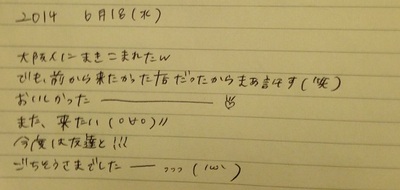 2014 6月18(水)
大阪人にまきこまれたw
でも、前から来たかった店だったからまあ許す(笑)
おいしかった ――――
また、来たい (०∀०)〃
今度は友達と!!!
ごちそうさまでした ― ･･･ (´ω`